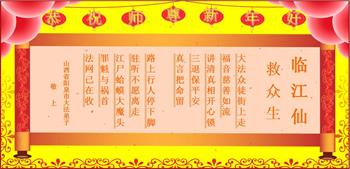 恭祝师尊新年好
临江仙
救众生
大法众徒街上走
福音慈善如流
讲清真相开心锁
三退保平安
真言把命留
路上行人停下脚
驻听不愿离走
江尸蛤蟆大魔头
罪魁与祸首
法网已在收
山西省阳泉市大法弟子
敬上